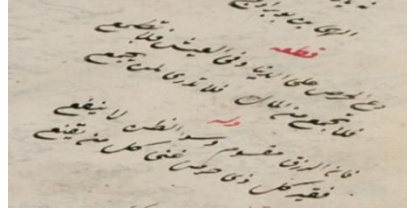 قطعه
دع الحرص على الدنيا وفى العيش فلا تطمع
فلا تجمع من المال فلا تدرى لمن تجمع
وله
فان الرزق مقسوم وسو الظن لا ينفع
فقير كل ذى حرص غنى كل من يقنع